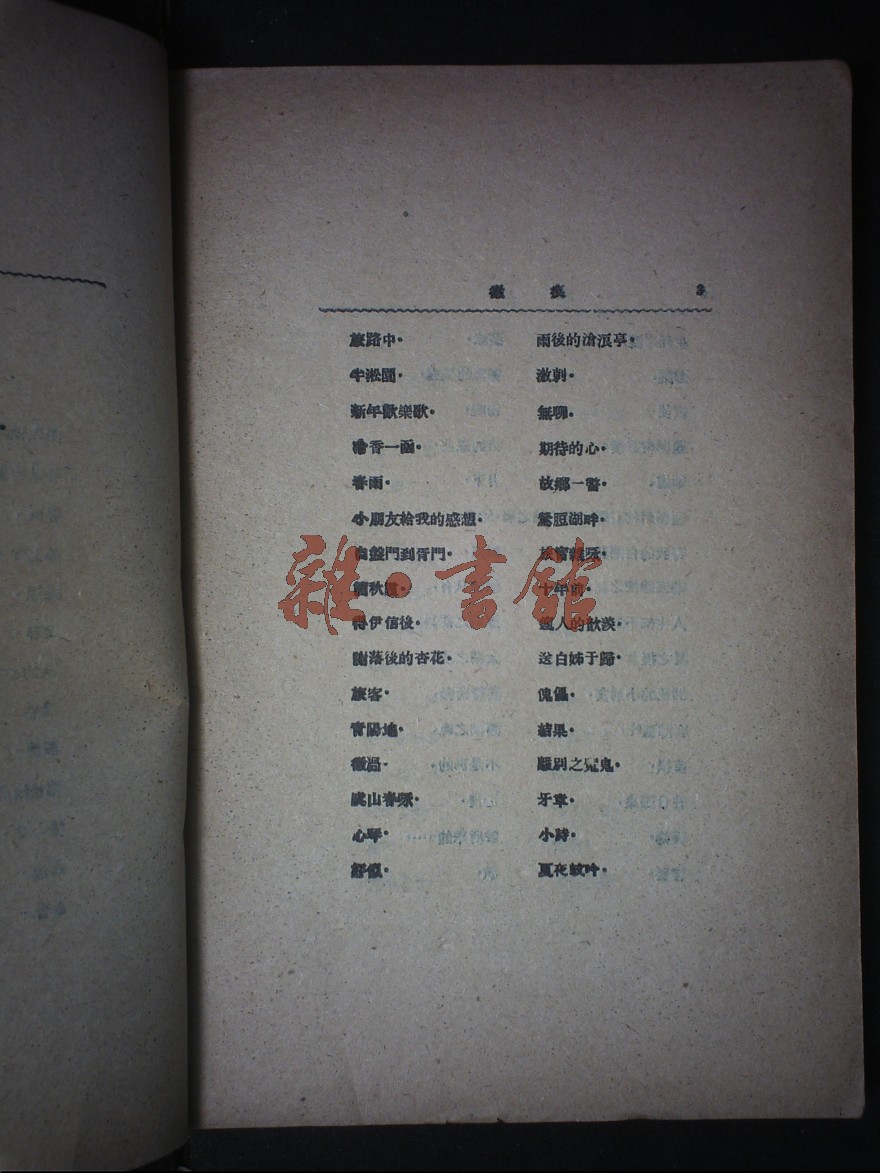 微 痕 3
旅路中· 雨後的滄浪亭·
半淞園· 激刺·
新年歡樂歌· 無聊·
・香一函· 期待的心·
春雨· 故鄉一瞥·
小朋友給我的感想· 鶯脰湖畔·
自盤門到胥門·
秋 十年前·
得伊信後· 人的歎·
謝落後的杏花· 送白姊于歸·
旅客· 傀儡·
青陽地· 結果·
微温· 離別之冤鬼·
虎山春· 牙章·
心琴· 小詩·
夏夜蚊吟·
雜·書館